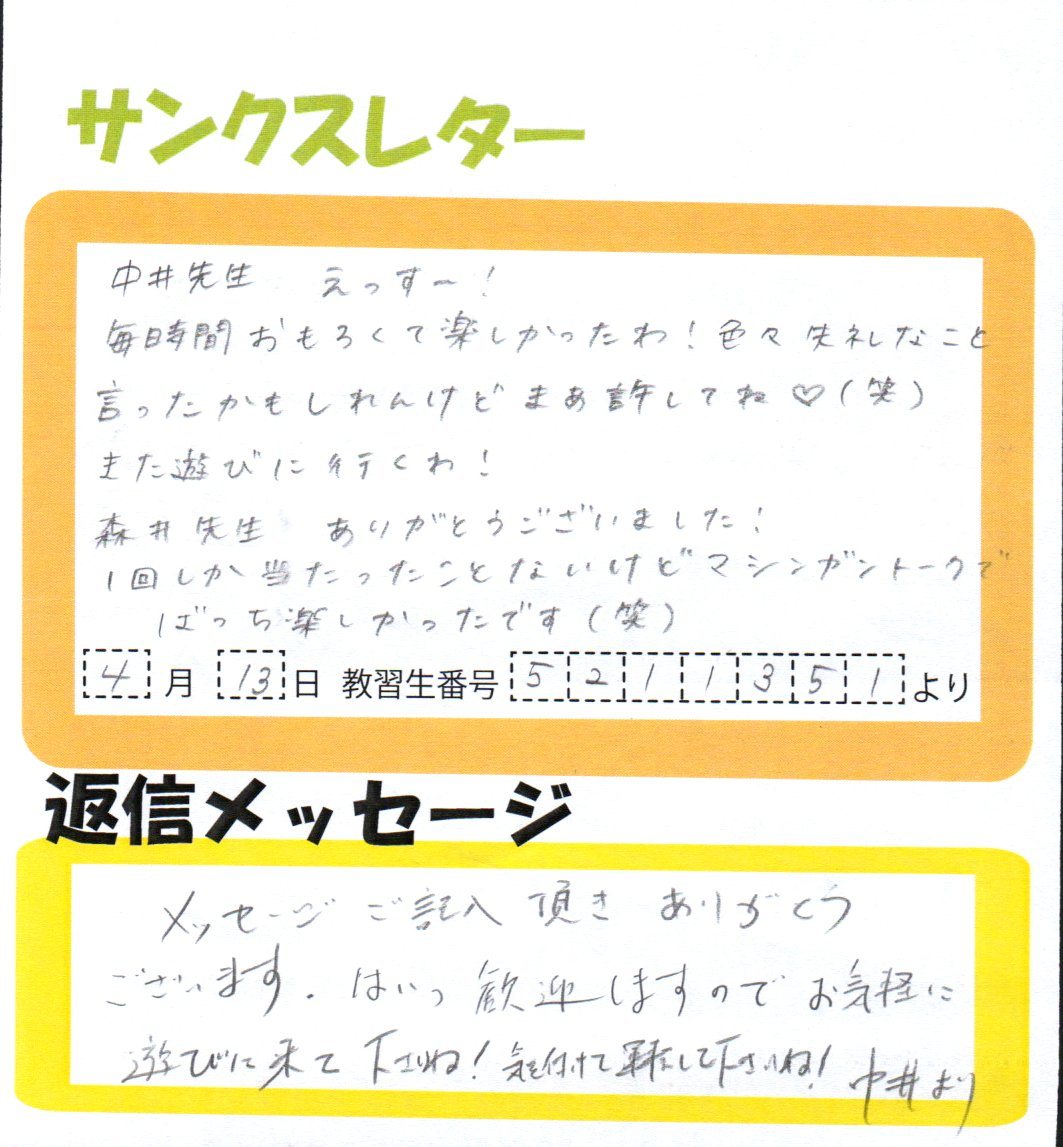 サンクスレター
中井先生 えっす〜!
毎日時間おもろくて楽しかったわ!色々失礼なこと
言ったかもしれんけどまあ許してね♡(笑)
また遊びに行くわ!
森井先生 ありがとうございました!
1回しか当たったことないけどマシンガントークで
ばっち楽しかったです(笑)
4月13日 教習生番号5211351より
返信メッセージ
メッセージご記入頂きありがとう
ございます。はいっ歓迎しますのでお気軽に
遊びに来て下さいね!気を付けて運転して下さいね!中井より